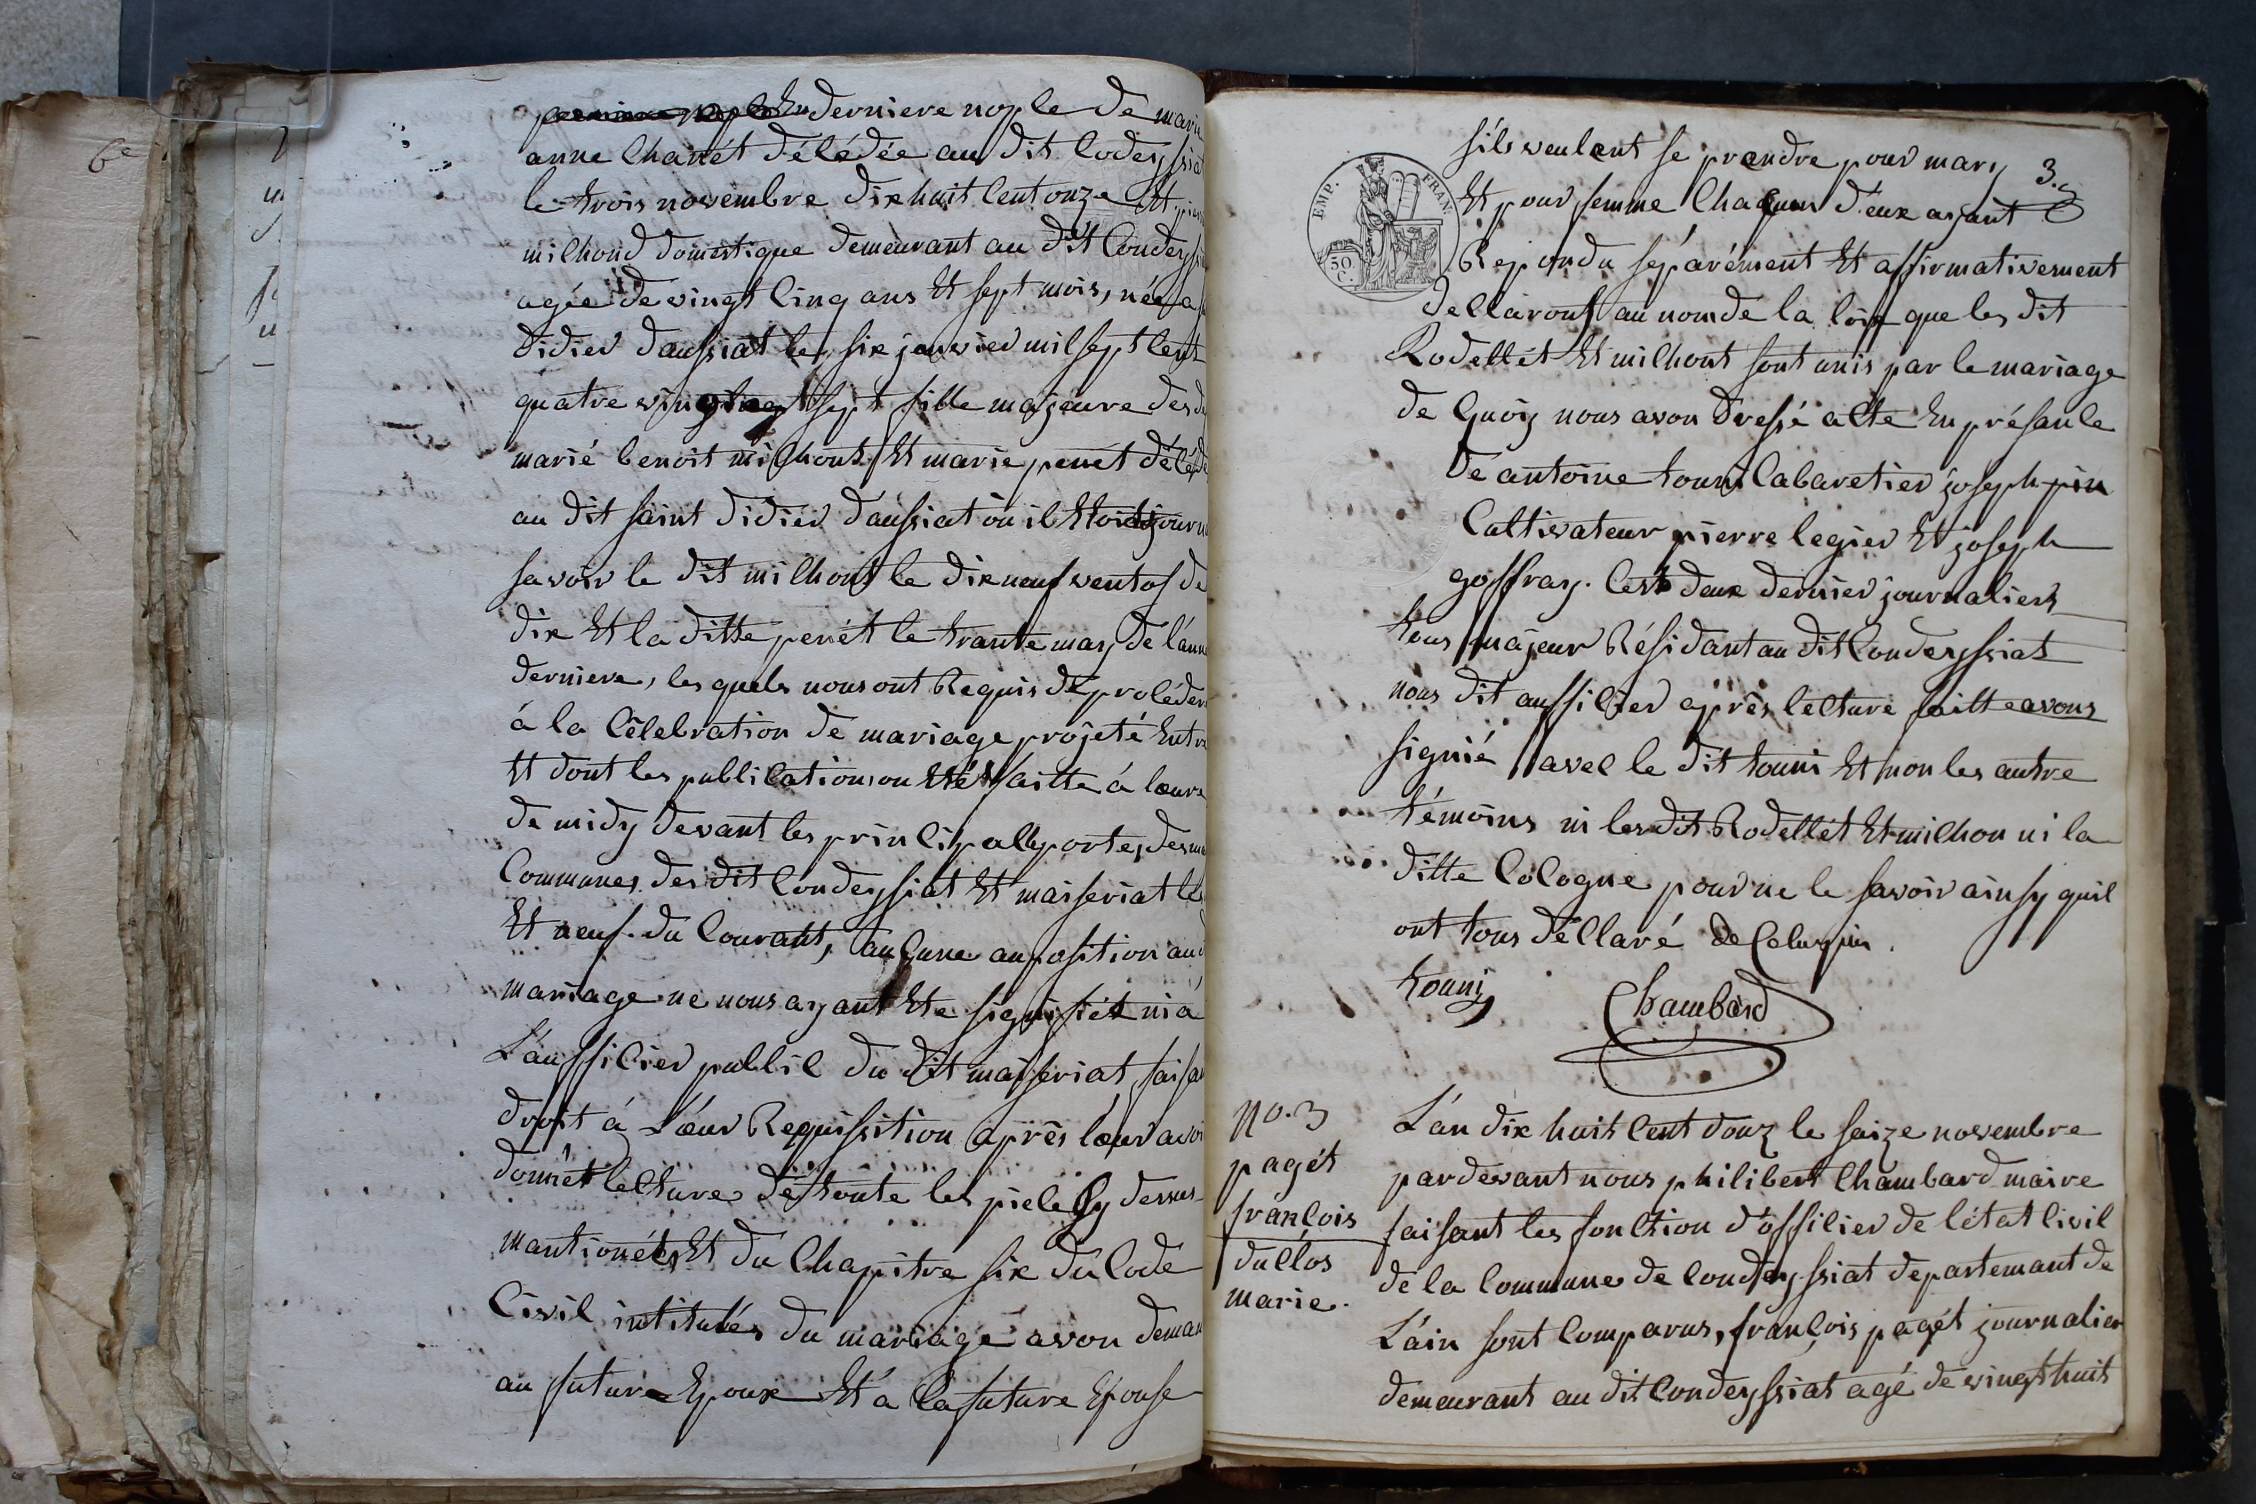 6e
En derniere nople de marie
anne Chanét décédée au dit Codeyssiat
le trois novembre dix huit cent onze Et pierr
milhond domestique demeurant au dit Condeyssi
agée de vingt cinq ans Et sept mois, née a
didier daussiat le six janvier mil sept cent
quatre vingt sept fille majeure des de
marié benoit milhont Et marie penet décédé
au dit saint didier daussiat où il Etoit journ
savoir le dit milhont le dix neuf ventos de
dix Et la ditte penét le trante mars de l'ann
derniere, les quels nous ont Requis de procéder
á la Célebration de mariage projeté Entre
Et dont les publication on Eté faitte á lœure
de midy devant les principalle portes des
Communes des dit Condeyssiat Et maiseriat le
Et neuf du Courant, aucune auposition au d
mariage ne nous ayant Ete signifiét ni á
L'aussicier public du dit maiseriat, faisa
droit á Lœur Requissition après lœur avoi
donnét lecture de toute les piece Cy dessus
mantionées Et du Chapitre six du Code
Civil intitulés du mariage avon deman
au future Epoux Et á la future Epouse
3.e
EMP. FRAN.
50 C.
s'ils veulent se prendre pour mary
Et pour femme Chaquns d'eux ayant
Repondu séparément Et affirmativement
declaront au nom de la loix que les dit
Rodellét Et milhont sont unis par le mariage
de Quoiy nous avon dressé acte En présance
de antoine touni Cabaretier joseph pin
Caltivateur pierre legier Et joseph
goffray. Cest deux dernier journaliers
tous majeur Résidant au dit Condeyssiat
nous dit aussicier après lecture faitte avons
signié avec le dit touni Et non les autre
témoins ni les dit Rodellét Et milhon ni la
ditte Cologne pour ne le savoir ainsy quil
ont tous déclaré de Celuy
touni
Chambard
no. 3
pagét
françois
duclos
marie.
L'an dix huit cent douz le saize novembre
pardevant nous philibert Chambard maire
faisant les fonction d'officier de l'état Civil
de la Commune de Condeyssiat departemant de
L'áin sont Comparus, françois pagét journalier
demeurant au dit Condeyssiat agé de vingt huit